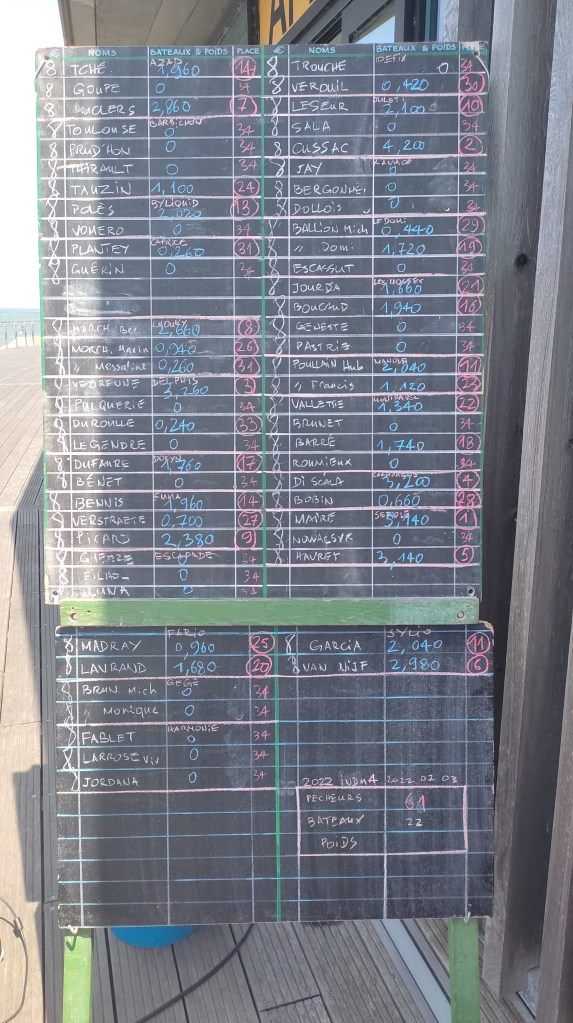 € NOMS BATEAUX & POIDS PLACE
AZAD
8 TCHÉ 1,960 14
8 GOUPE 0 34
8 2,860 7
BARBICHON
8 TOULOUSE 0 34
8 PRUD'HON 0 34
8 THIRAULT 0 34
8 TAUZIN 1,100 24
8 2,020 13
8 VOMERO 0 34
CAPRICE
8 PLANTEY 0,260 31
8 GUÉRIN 0 34
8 MORCH. 2,660 8
8 MORCH. 0,940 26
8 " Messaline 0,260 31
DELPHIS
8 VEDRENNE 3,260 3
8 PULQUERIE 0 34
8 DUROULLE 0,240 33
8 LEGENDRE 0 34
8 DUFAURE 1,760 17
8 BÉNET 0 34
8 BENNIS 1,960 14
8 VERSTRAETE 0,700 27
8 PICARD 2,380 9
ESCAPADE
8 0 34
8 0 34
LUNA 0 34
€ NOMS BATEAUX & POIDS PLACE
IDEFIX
8 TROUCHE 0 34
8 VEROUIL 0,420 30
8 LESEUR 2,100 10
8 SALA 0 34
8 CUSSAC 4,200 2
8 JAY 0 34
8 0 34
8 DOLLOIS 0 34
LE DOMI
8 BALLION Mich 0,440 29
8 " Domi 1,720 19
8 ESCASSUT 0 34
8 JOURDA 1,660 21
8 BOUCAUD 1,940 16
8 GENESTE 0 34
8 PASTRIE 0 34
8 POULAIN Hub 2,040 11
8 " Francis 1,120 23
8 VALLETTE 1,340 22
8 BRUNET 0 34
8 BARRÉ 1,740 18
8 ROUMIEUX 0 34
8 DI SCALA 3,200 4
8 BOBIN 0,660 28
8 MAIRÉ 5,140 1
8 0 34
8 HAVRET 3,140 5
FARIO
8 MADRAY 0,960 25
8 LAVRAND 1,680 20
GEGE
8 BRUN Mich 0 34
8 " Monique 0 34
HARMONIE
8 FABLET 0 34
8 LARROSE Viv 0 34
8 JORDANA 0 34
8 GARCIA 2,040 11
8 VAN NIJF 2,980 6
2022 2022 07 03
PECHEURS 61
BATEAUX 22
POIDS